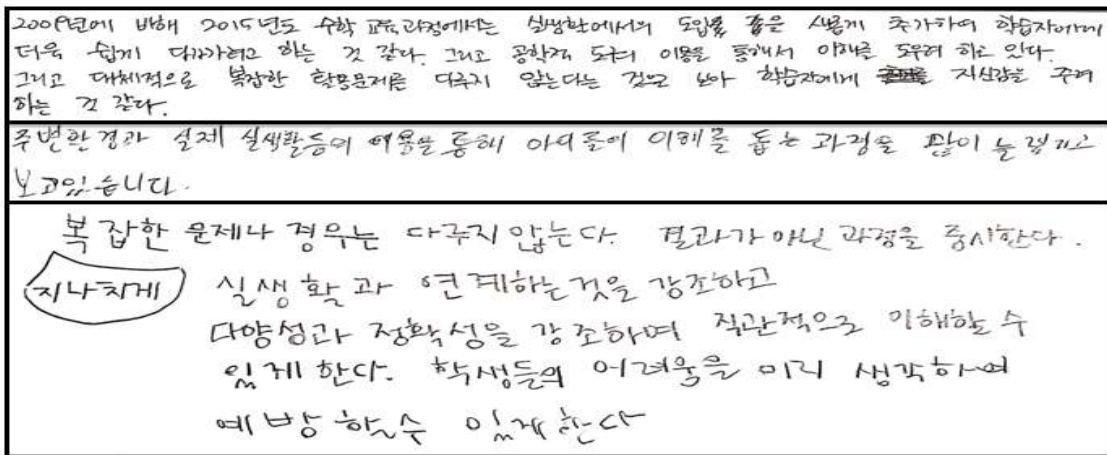 2009년에 비해 2015년도 수학 교육과정에서는 실생활에서의 도입 등을 새롭게 추가하여 학습자에게
더욱 쉽게 다가가려고 하는 것 같다. 그리고 공학적 도구의 이용을 통해서 이해를 도우려 하고 있다.
그리고 대체적으로 복잡한 활용문제를 다루지 않는다는 것으로 보아 학습자에게 자신감을 주려
하는 것 같다.
주변환경과 실제 실생활등의 예용을 통해 아이들이 이해를 돕는 과정을 많이 늘렸다고
보고있습니다.
복잡한 문제나 경우는 다루지 않는다. 결과가 아닌 과정을 중시한다.
지나치게 실생활과 연계하는것을 강조하고
다양성과 정확성을 강조하며 직관적으로 이해할 수
있게 한다. 학생들의 어려움을 미리 생각하여
예방 할수 있게 한다